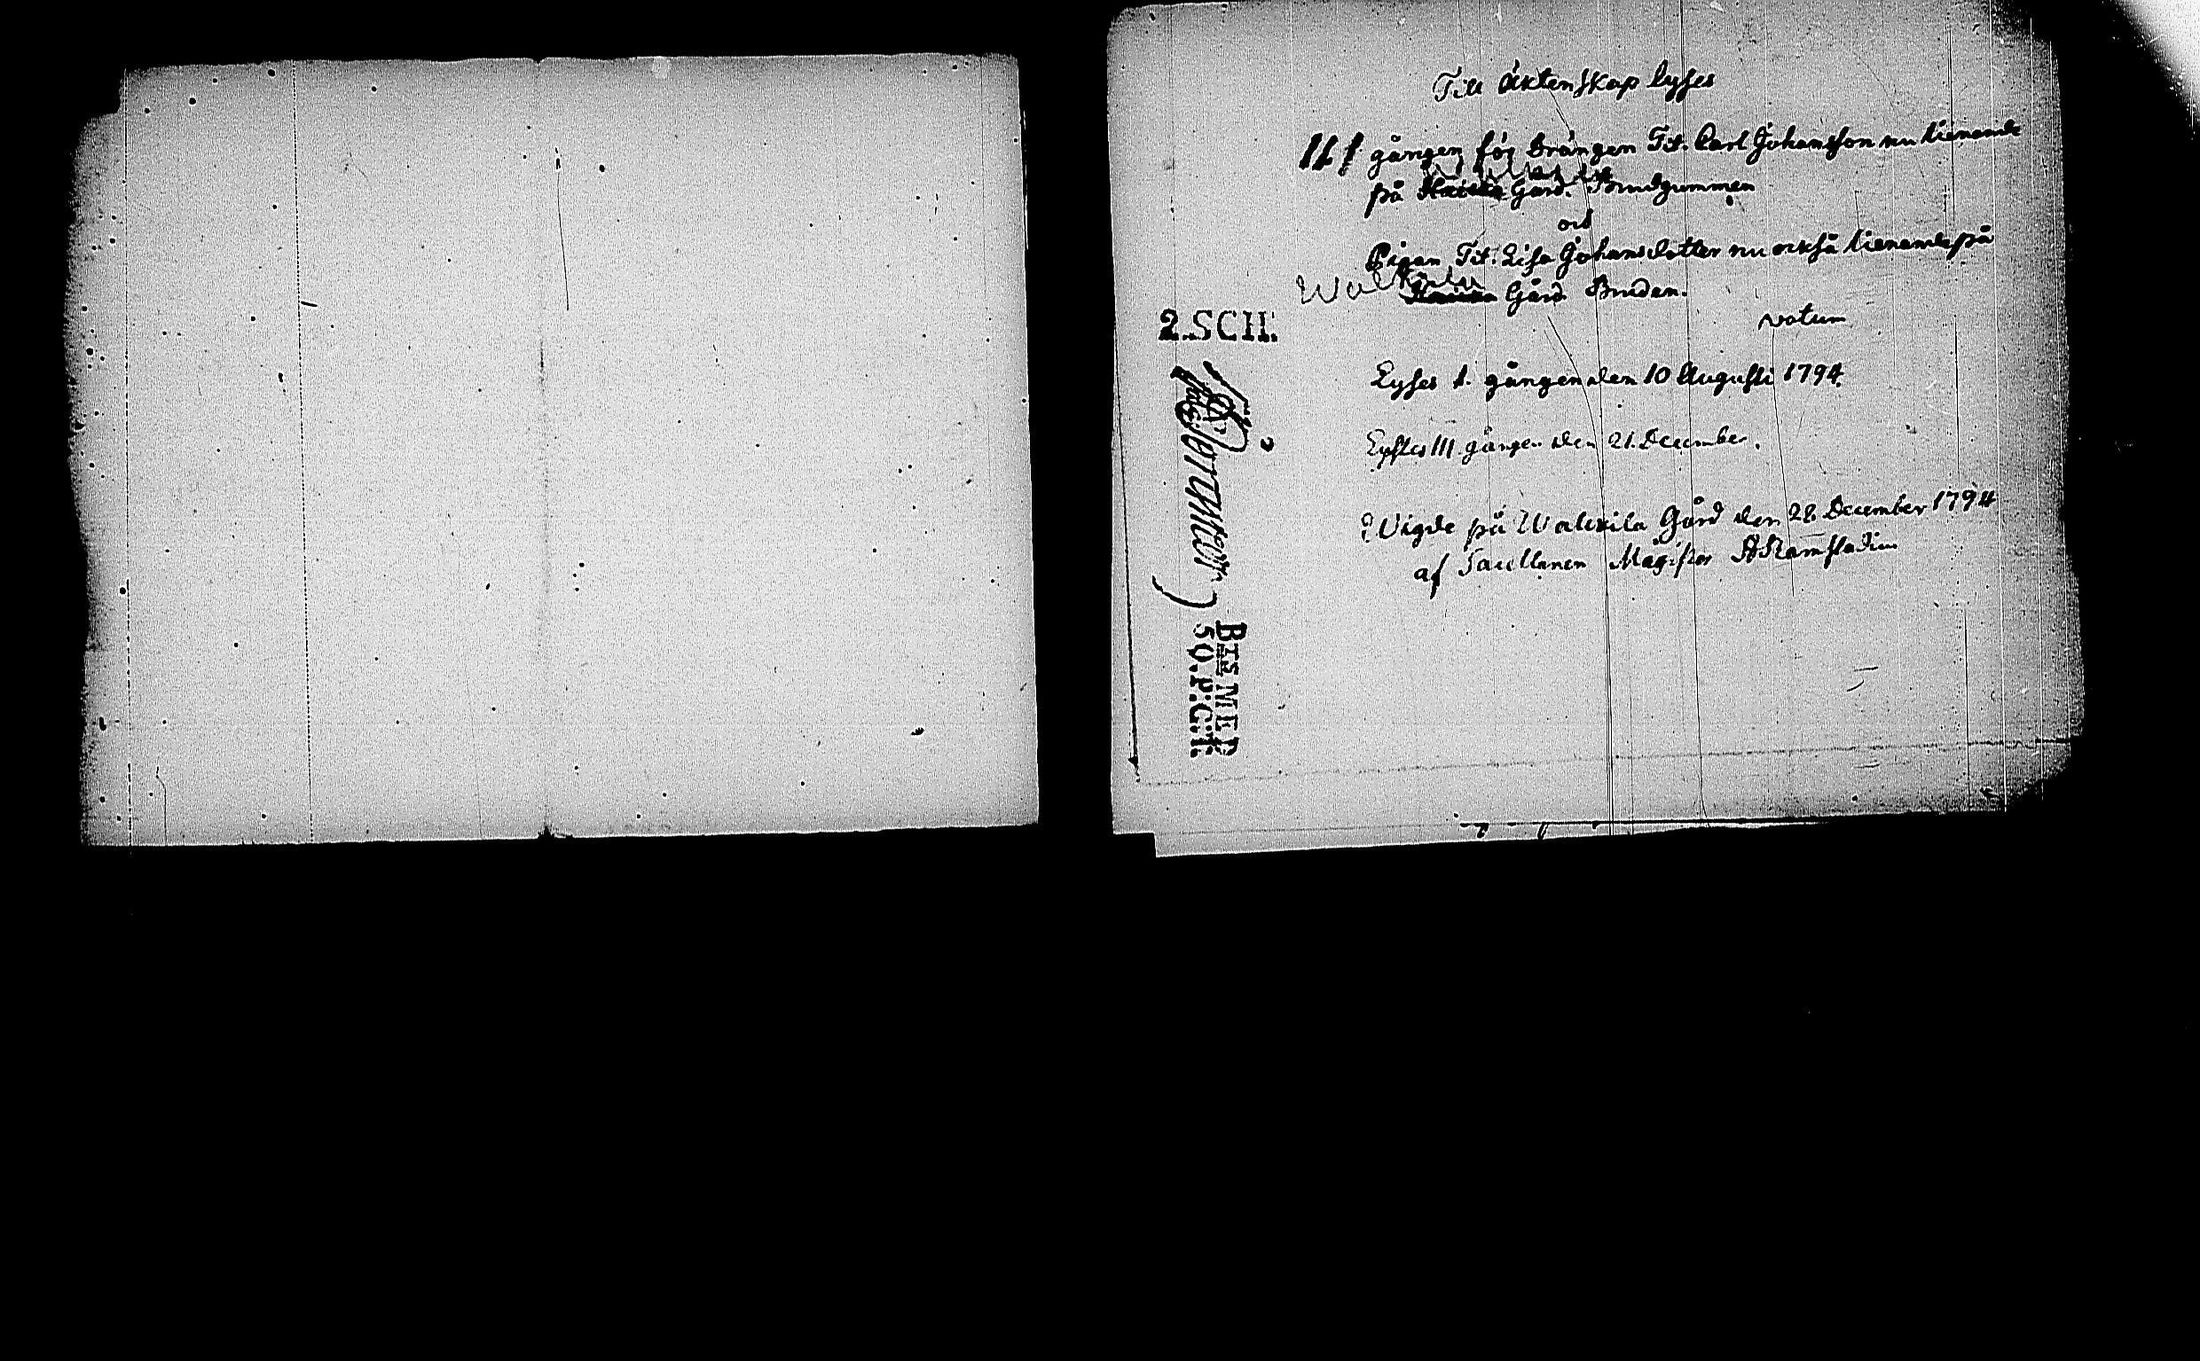 Till äktenskap lyses
III gången för Drängen Tit. Carl Johansson nu tienande
på Gård. Brudgummen
och
Pigan Tit. Lisa Johansdotter nu också tienande på
Walkila Gård Bruden.
votum
Lyses 1. gången den 10 Augusti 1794.
Lystes III gången den 21. December.
Wigde på Walkila Gård den 28. December 1794
af Capellanen Magister
2.SCH.
BTSMED
50.P:C:T.